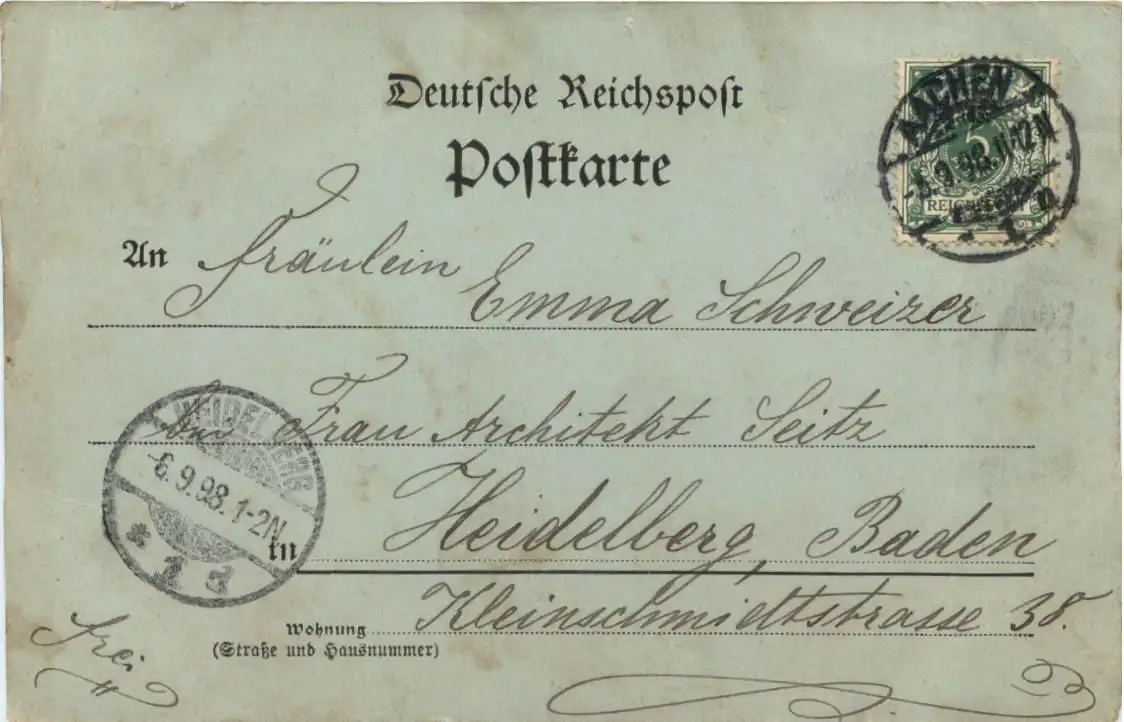 Deutsche Reichspost
Postkarte
AACHEN
9.98.11-12N
5
1
An Fräulein
Emma Schweizer
bei Frau Architekt Seitz
HEIDELBERG
-6.9.98.1-2N
* 1 d
in Heidelberg, Baden
Kleinschmidtstrasse 38.
Wohnung
(Straße und Hausnummer)
frei